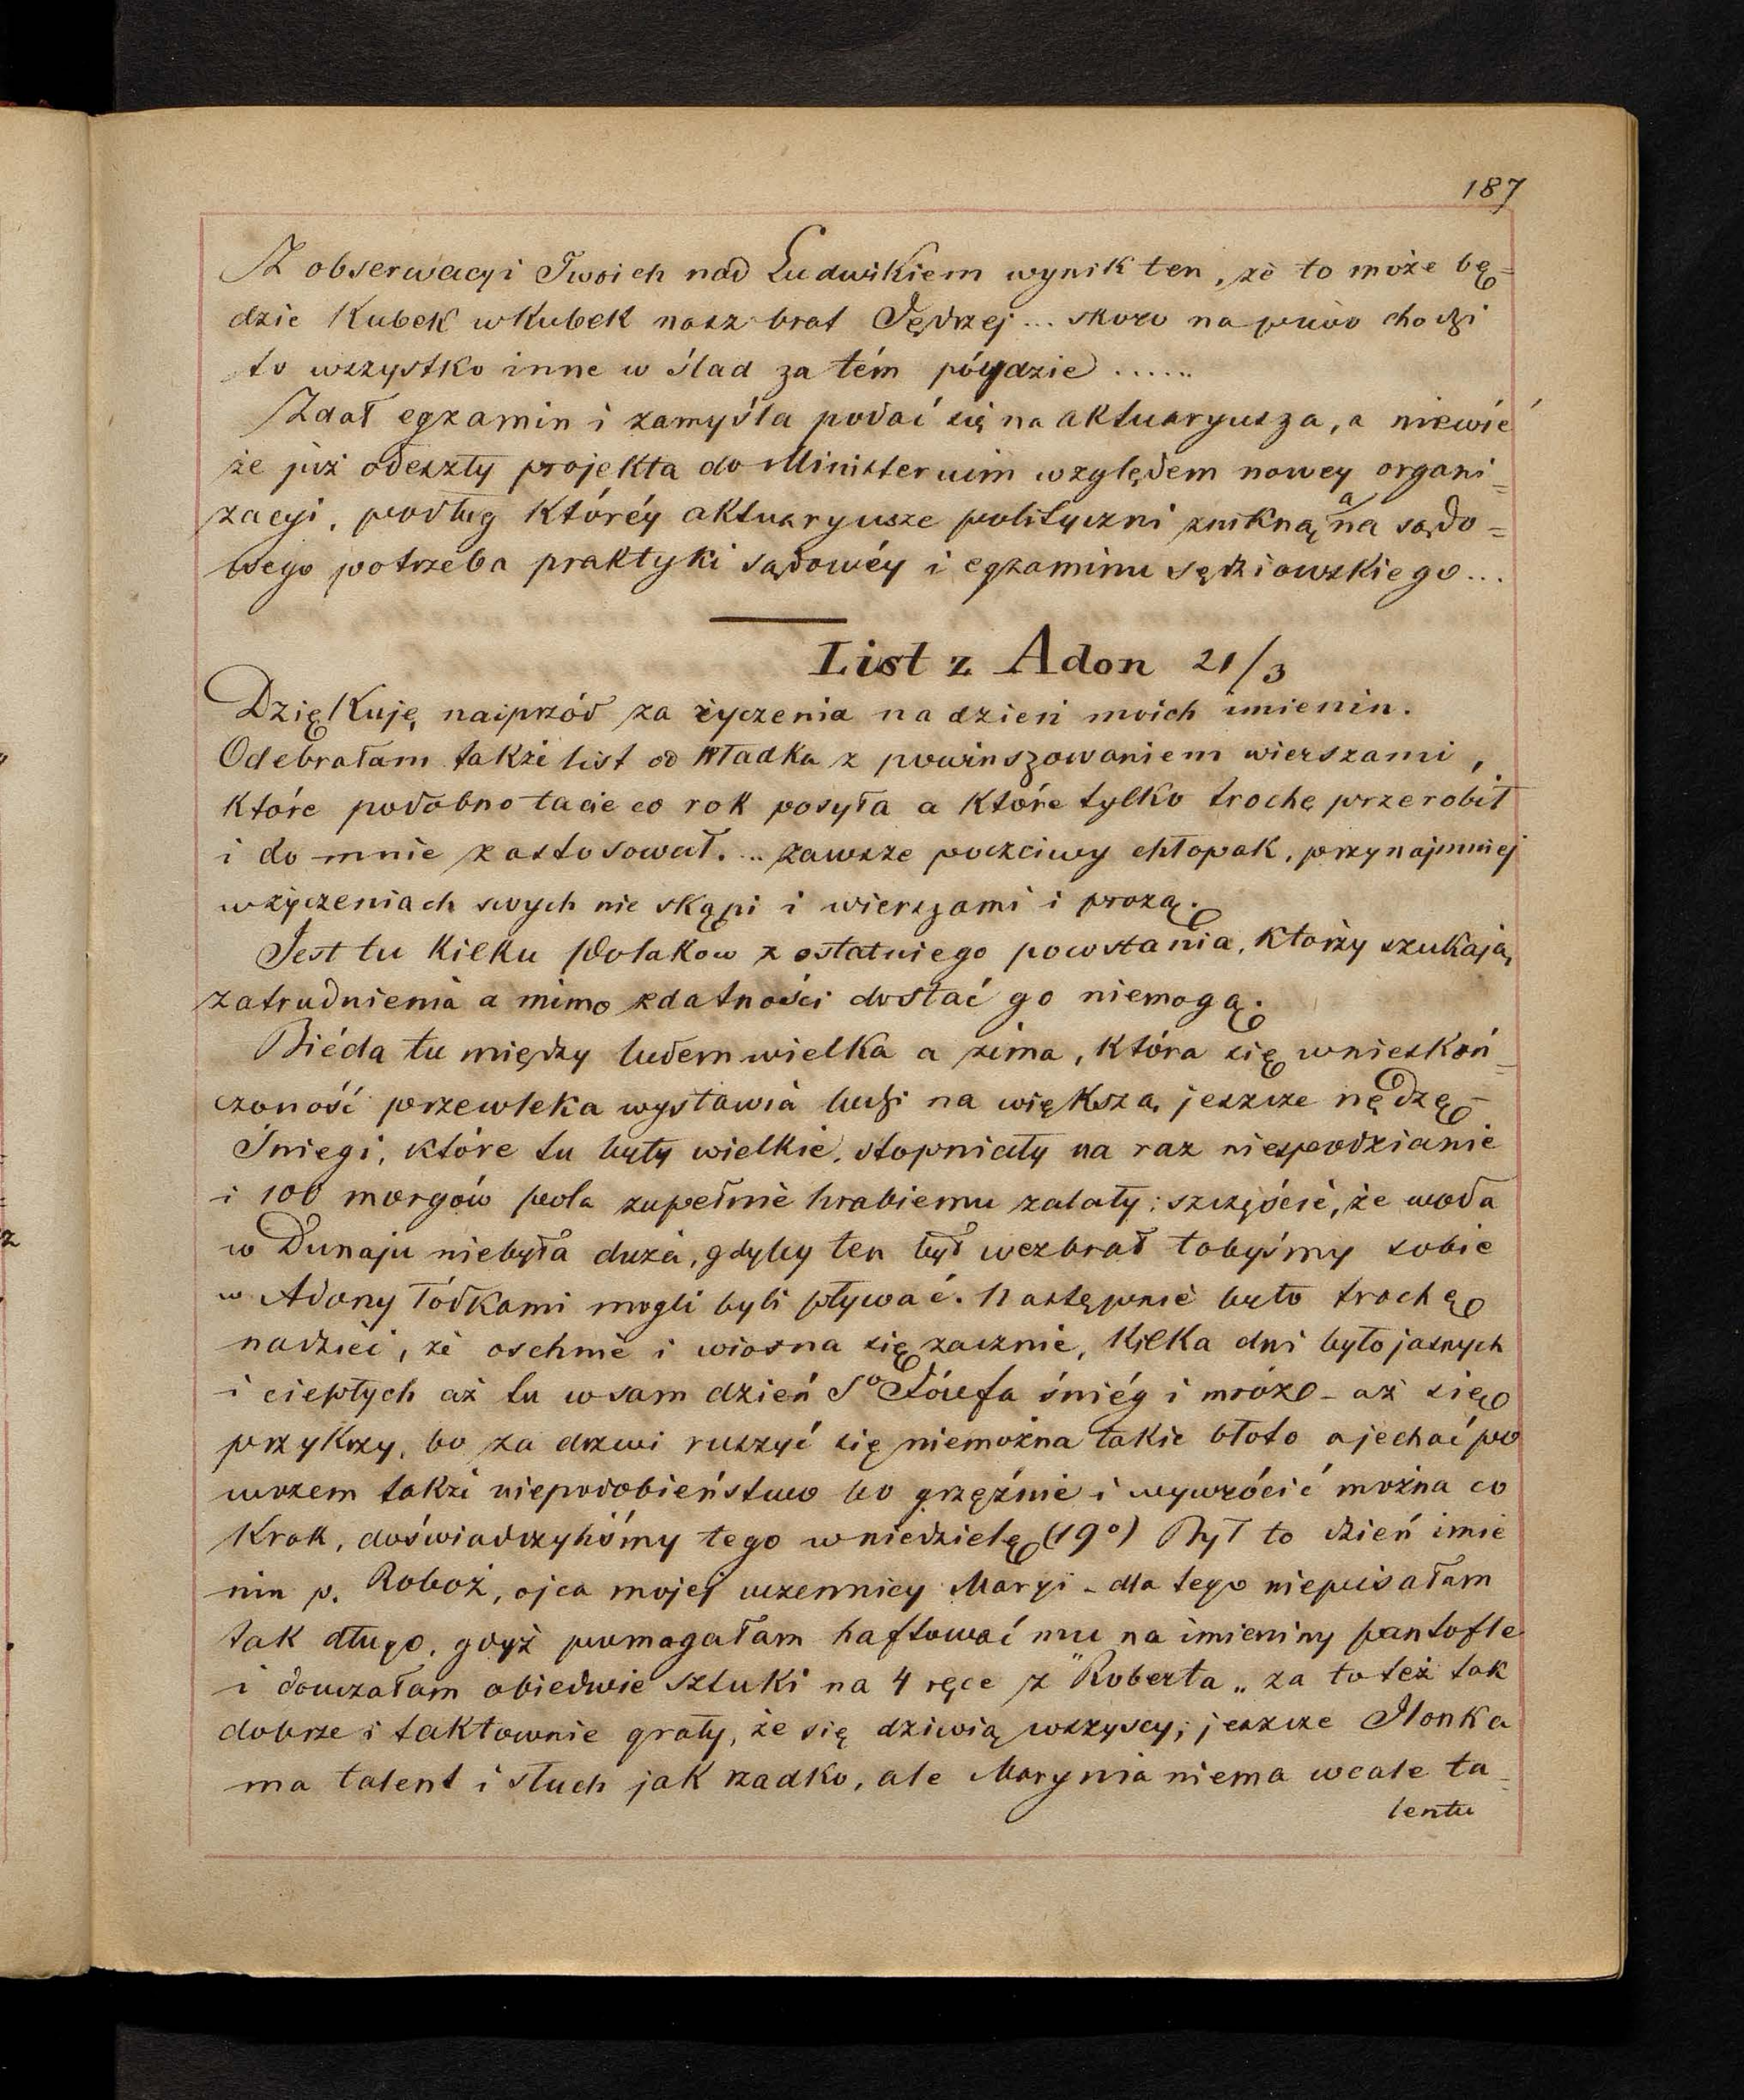 187
Z obserwacyi Twoich nad Ludwikiem wynik ten, że to może bę=
dzie Kubek w Kubek nasz brat Jędrzej... skoro na piwo chodzi
to wszystko inne w ślad za tém póydzie ......
Zdał egzamin i zamyśla podać się na aktuaryusza, a niewié
że już odeszły projekta do Ministeruim względem nowey organi=
zacyi, podług któréy aktuaryusze polityczni znikną a na sądo=
wego potrzeba praktyki sądowéy i egzaminu sędziowskiego...
List z Adon 21/3
Dziękuję naiprzód za życzenia na dzień moich imienin.
Odebrałam także list od Władka z powinszowaniem wierszami,
które podobno tacie co rok posyła a które tylko trochę przerobił
i do mnie zastosował... zawsze poczciwy chłopak, przynajmniej
w życzeniach swych nie skąpi i wierszami i prozą.
Jest tu kilku Polakow z ostatniego powstania, ktorzy szukają
zatrudnienia a mimo zdatności dostać go niemogą.
Biéda tu między ludem wielka a zima, która się w nieskoń=
czoność przewleka wystawia ludzi na większą jeszcze nędzę –
Śniegi, które tu były wielkie, stopniały na raz niespodzianie
i 100 morgów pola zupełnie hrabiemu zalały; szczęście, że woda
w Dunaju niebyła duża, gdyby ten był wezbrał tobyśmy sobie
w Adony łódkami mogli byli pływać. Następnie było trochę
nadziei, że oschnie i wiosna się zacznie, kilka dni było jasnych
i ciepłych aż tu w sam dzień So Józefa śniég i mróz – aż się
przykrzy, bo za drzwi ruszyć się niemożna takie błoto a jechać po
wozem także niepodobieństwo bo grzęźnie i wywrócić można co
krok, doświadczyliśmy tego w niedzielę (19o) Był to dzień imie
nin p. Roboż, ojca mojej uczennicy Maryi – dla tego niepisałam
tak długo, gdyż pomagałam haftować mu na imieniny pantofle
i douczałam obiedwie sztuki na 4 ręce z "Roberta" za to też tak
dobrze i taktownie grały, że się dziwią wszyscy; jeszcze Ilonka
ma talent i słuch jak rzadko, ale Marynia niema wcale ta=
lentu